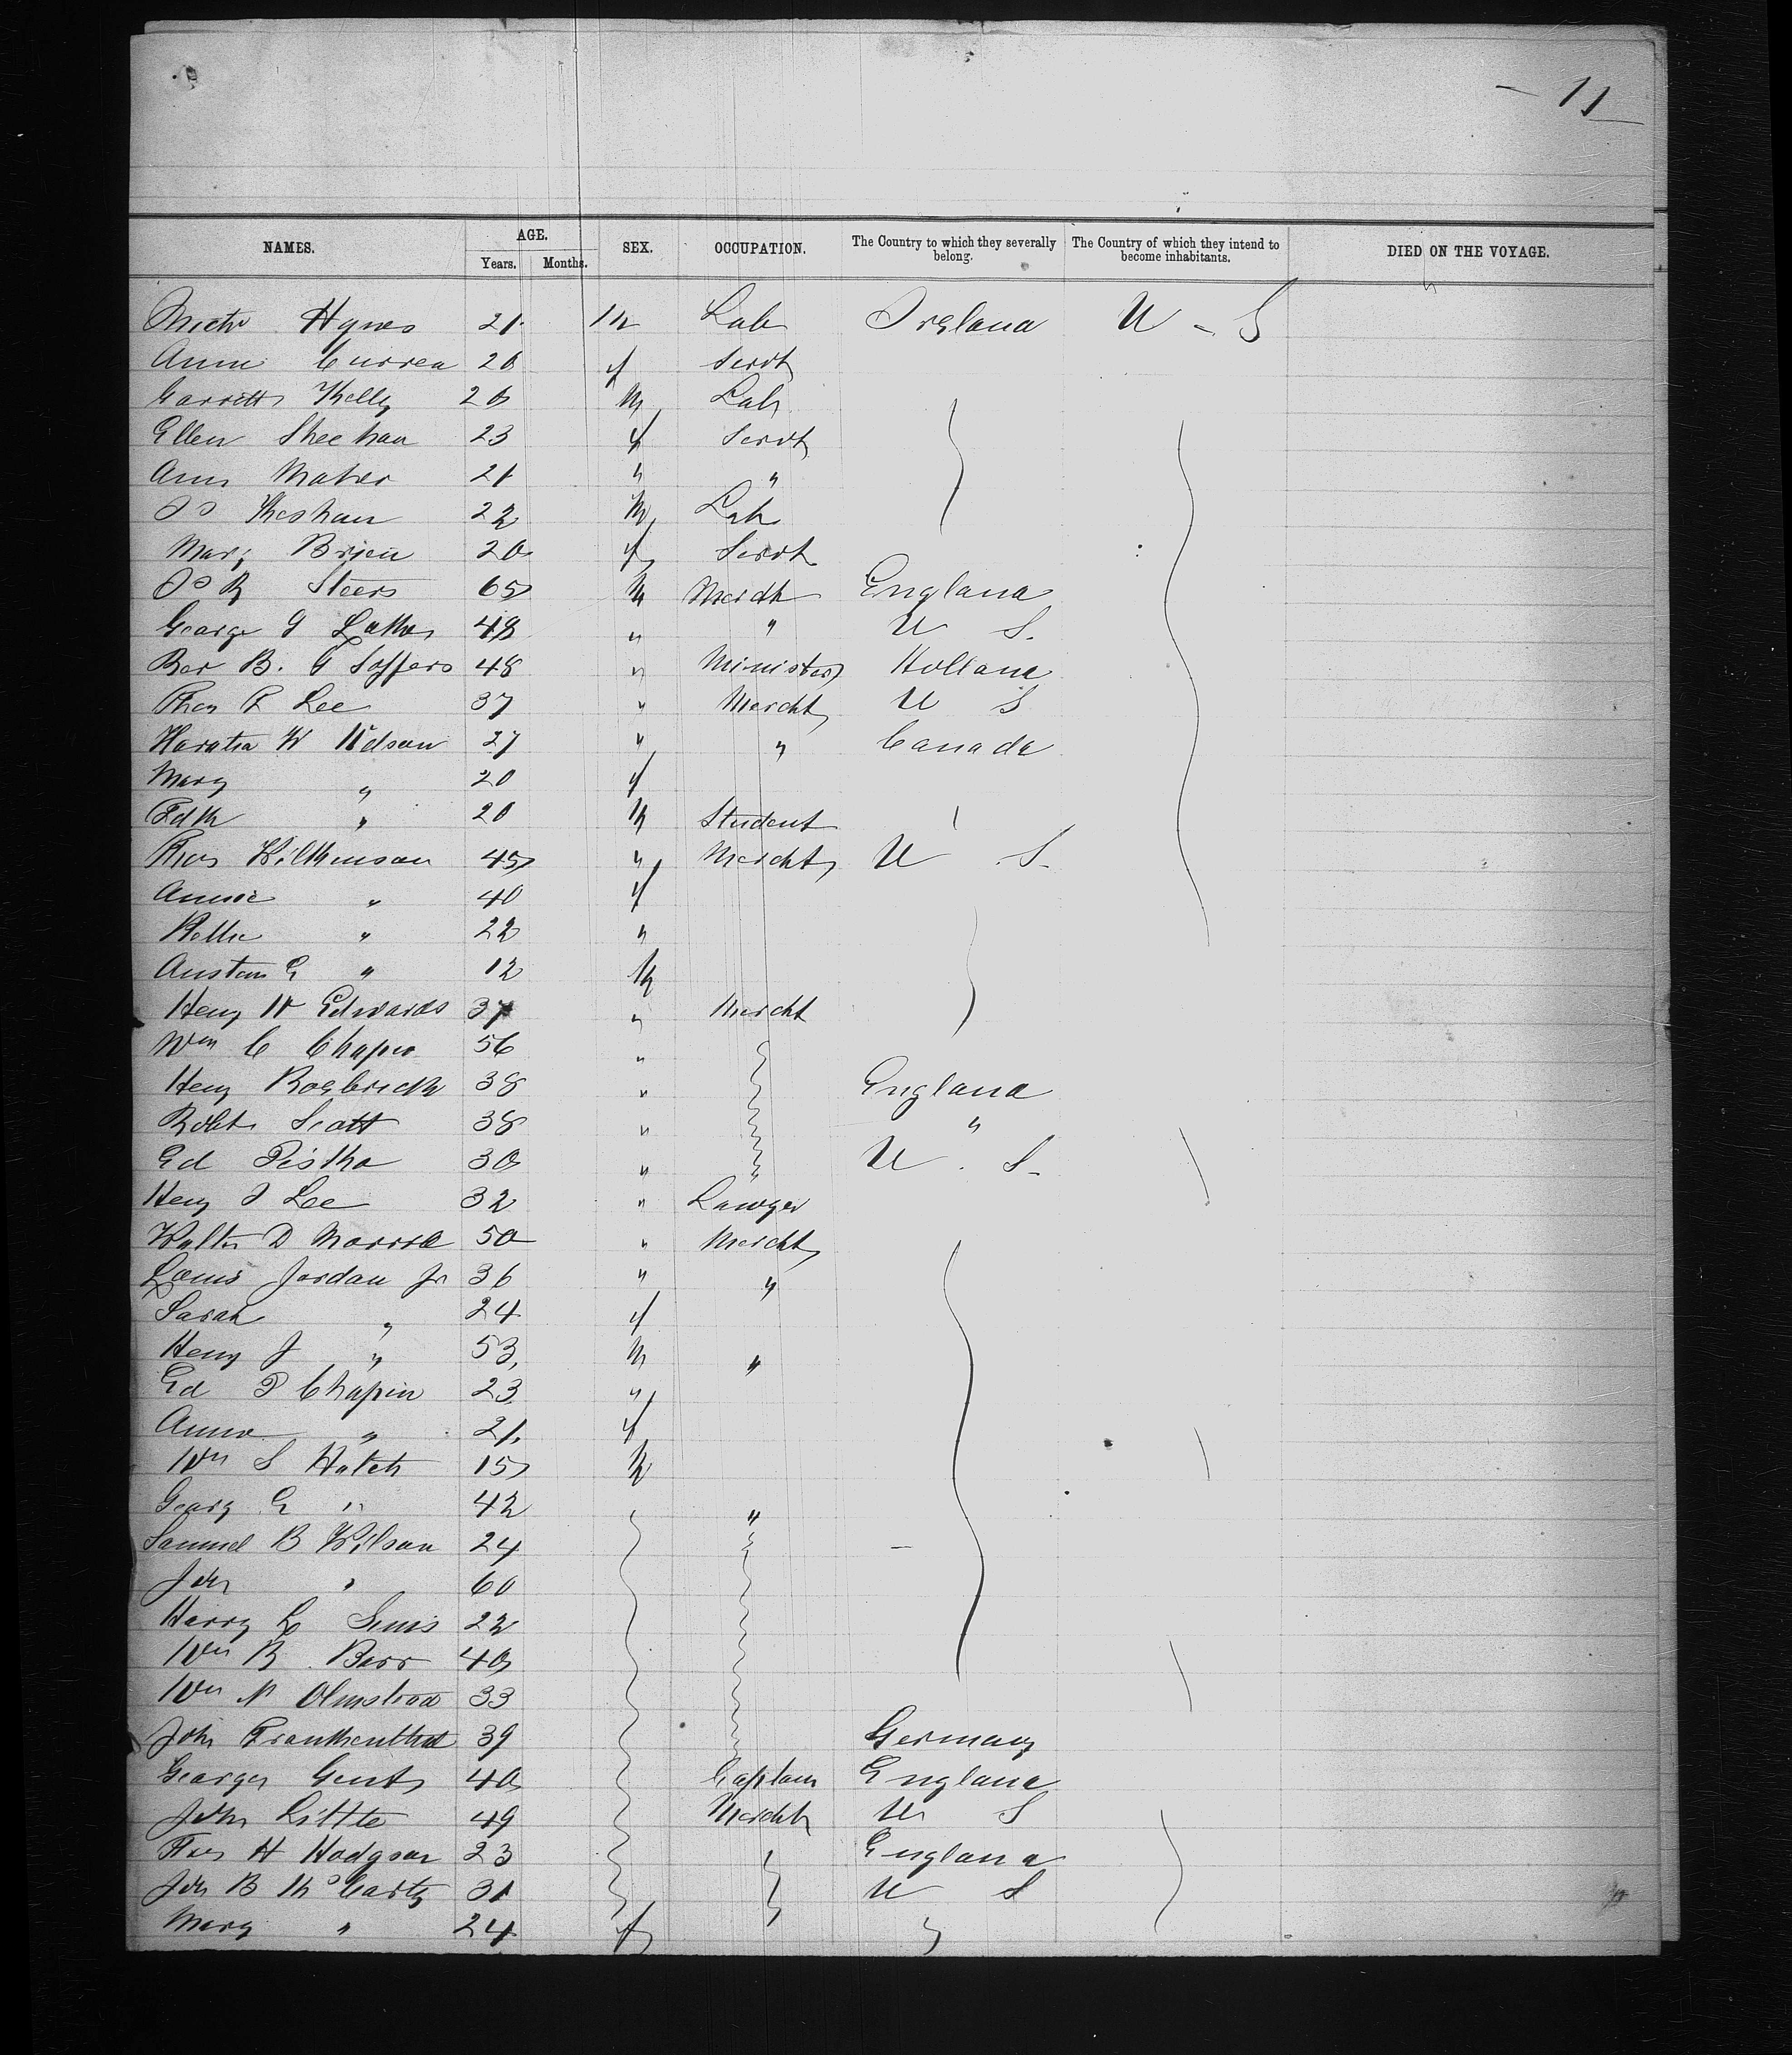 - 11
NAMES. AGE. SEX. OCCUPATION. The Country to which they severally belong. The Country of which they intend to become inhabitants. DIED ON THE VOYAGE.
Years. Months.
Hynes 21 M Lab Ireland U - S
Annie Curren 20 f Servt
Garrett Kelly 20 M Lab
Ellen Sheehan 23 f Servt
Ann Maher 21 " "
Jo Keshan 22 M Lab
Mary Brien 20 f Servt
Jo R Steers 65 M Mercht England
George G 48 " " U S.
Rev B. G 48 " Minister Holland
Thos P Lee 37 " Mercht U S
Horatia W 27 " " Canada
Mary " 20 f
Edth " 20 M Student
Thos Wilkinson 45 " Mercht U S
Annie " 40 f
" 22 "
Austin G " 12 M
Heny W Edwards 37 " Mercht
Wm C Chapin 56 "
Heny 38 " England
Robt Scott 38 " "
Ed 30 " U. S.
Heny J Lee 32 " Lawyer
Walter D 50 " Mercht
Louis Jordan Jr 36 " "
Sarah " 24 f
Heny J " 53 M "
Ed P Chapin 23 "
Anna " 21 f
Wm S Hatch 15 M
Georg G " 42 "
Samuel B Wilson 24
Jon " 60
Harry L Sims 22
Wm R Barr 40
Wm N Olmstead 33
John Frankenthal 39 Germany
George Gents 40 Captain England
John Little 49 Mercht U S
Thos H Hodgson 23 England
Jon B McCarty 31 U S
Mary " 24 f "